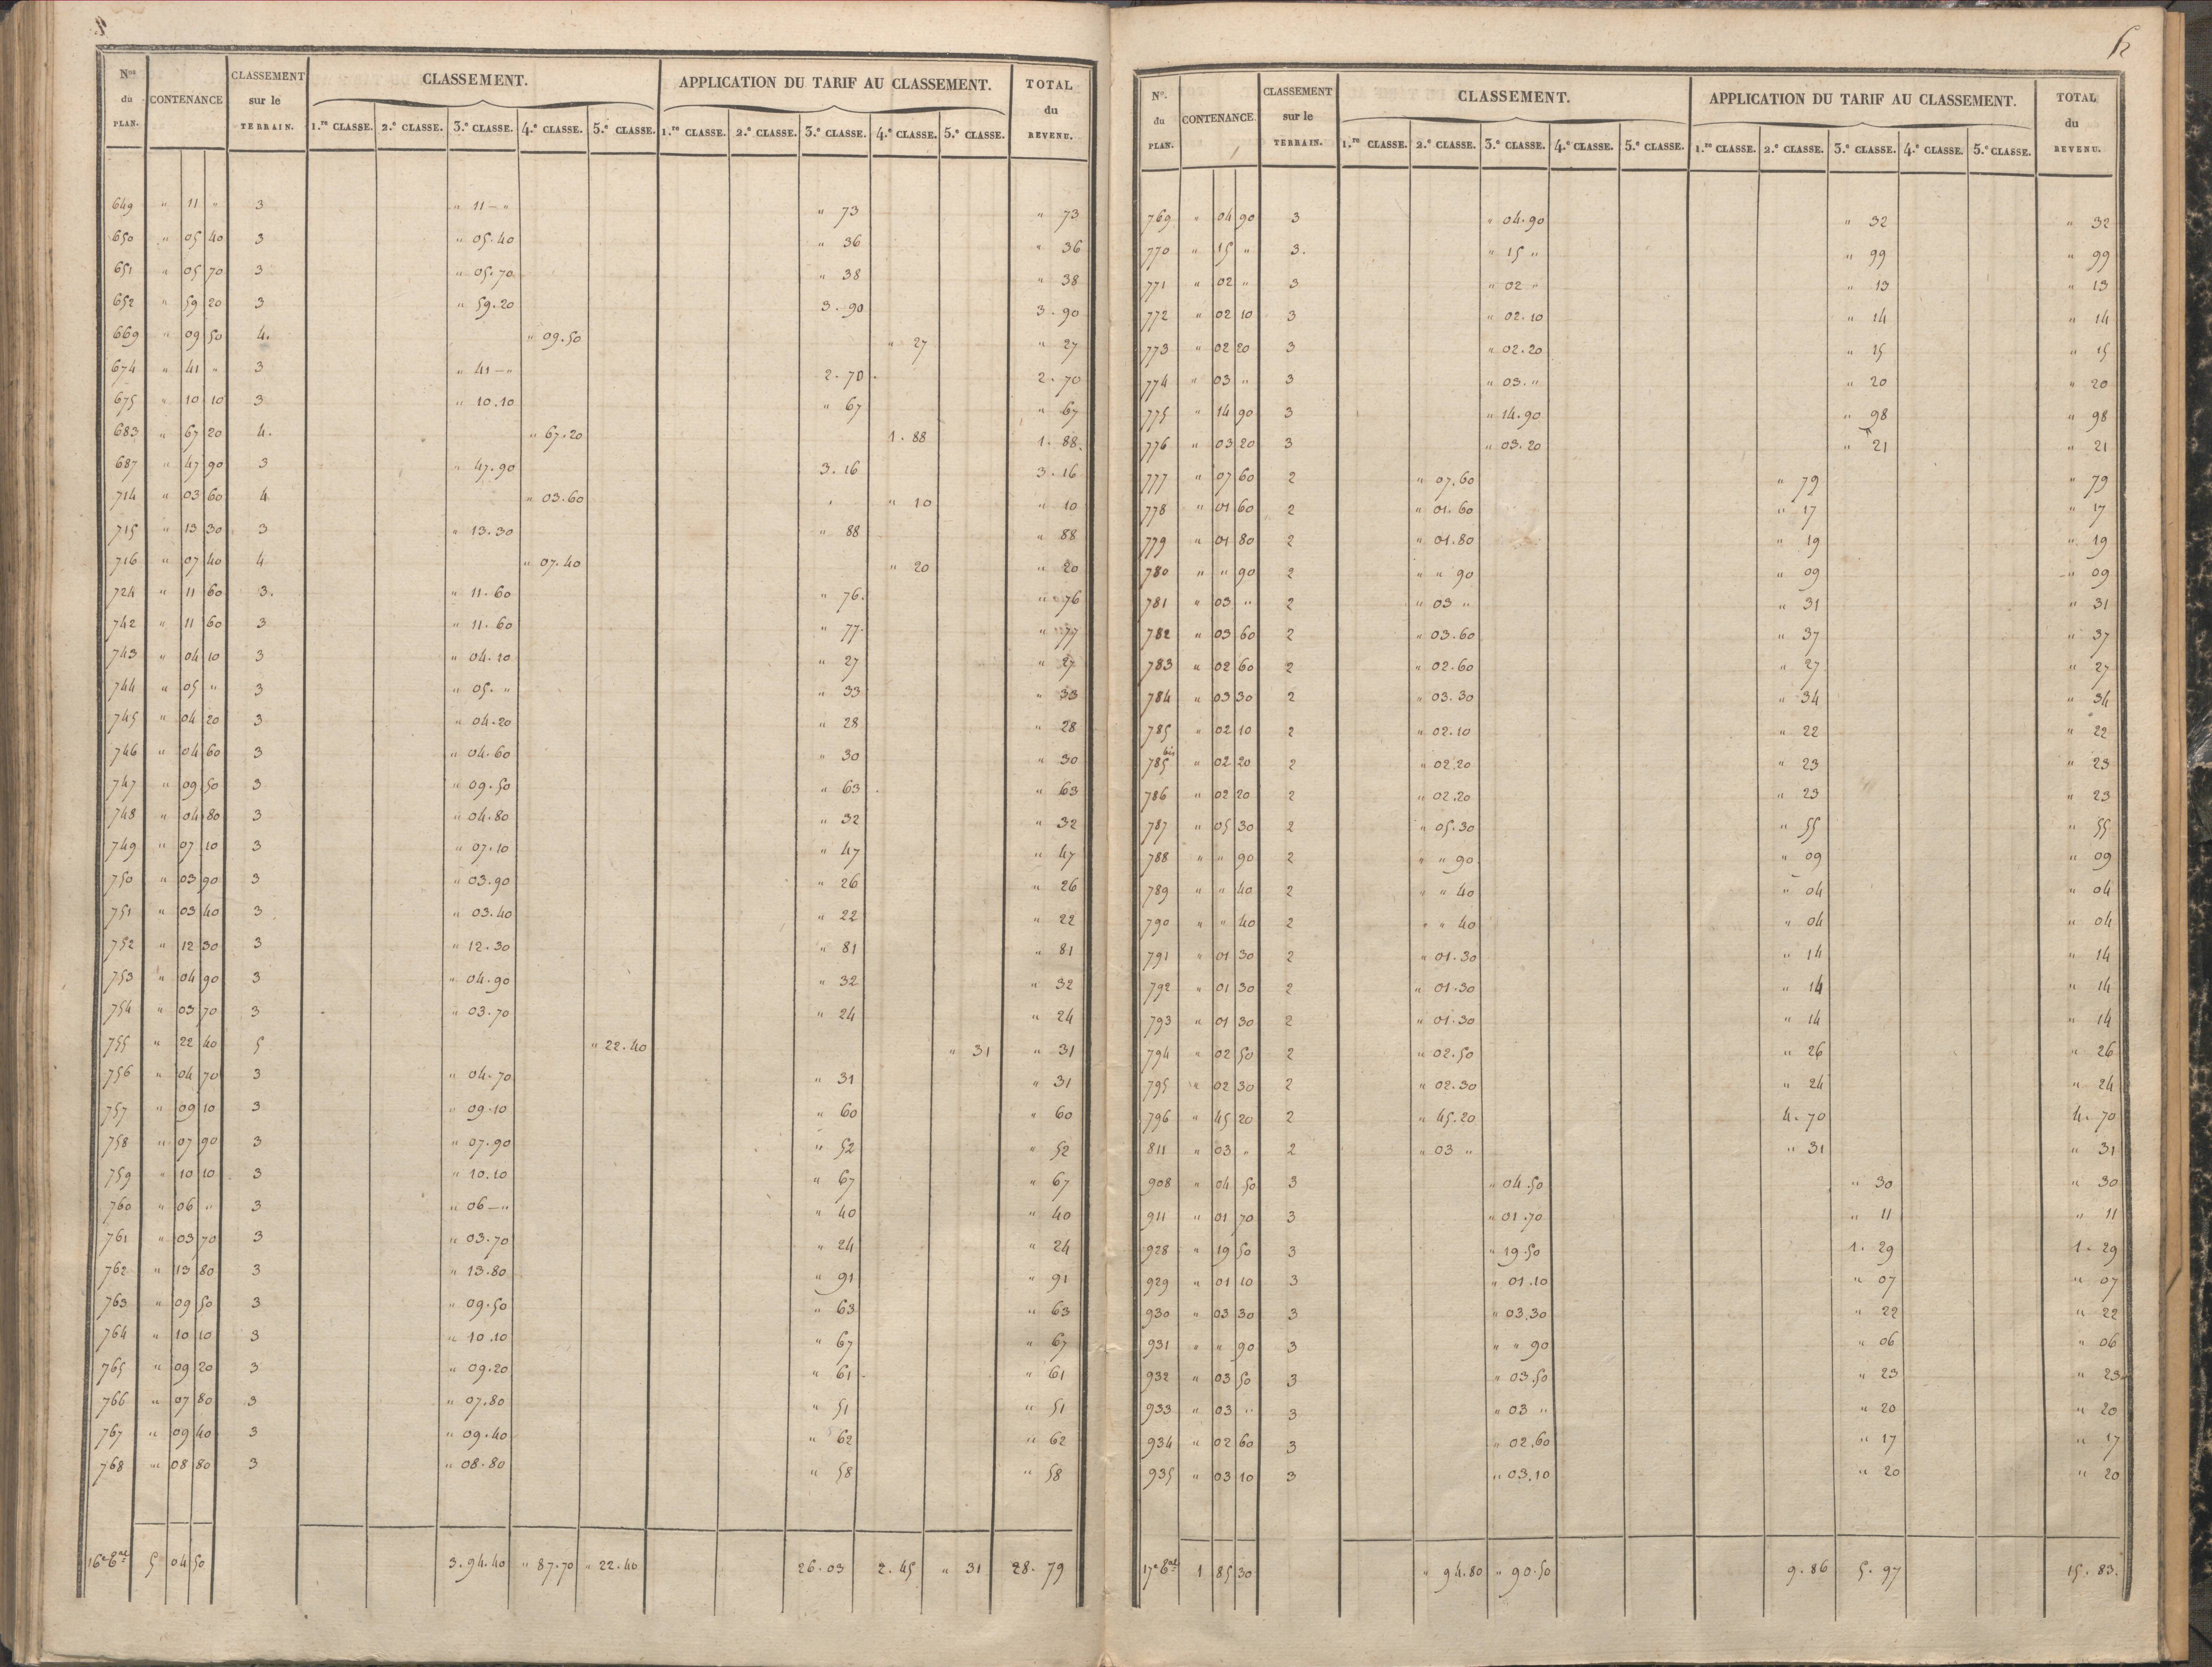 Nos du PLAN. CONTENANCE CLASSEMENT sur le TERRAIN. CLASSEMENT. APPLICATION DU TARIF AU CLASSEMENT. TOTAL du REVENU.
1.re CLASSE. 2.e CLASSE. 3.e CLASSE. 4.e CLASSE. 5.e CLASSE. 1.re CLASSE. 2.e CLASSE. 3.e CLASSE. 4.e CLASSE. 5.e CLASSE.
649 " 11 " 3 " 11 — " " 73 " 73
650 " 05 40 3 " 05.40 " 36 " 36
651 " 05 70 3 " 05.70 " 38 " 38
652 " 59 20 3 " 59.20 3.90 3.90
669 " 09 50 4. " 09.50 " 27 " 27
674 " 41 " 3 " 41 — " 2.70 2.70
675 " 10 10 3 " 10.10 " 67 " 67
683 " 67 20 4. " 67.20 1.88 1.88
687 " 47 90 3 " 47.90 3.16 3.16
714 " 03 60 4 " 03.60 " 10 " 10
715 " 13 30 3 " 13.30 " 88 " 88
716 " 07 40 4 " 07.40 " 20 " 20
724 " 11 60 3. " 11.60 " 76. " 76
742 " 11 60 3 " 11.60 " 77. " 77
743 " 04 10 3 " 04.10 " 27 " 27
744 " 05 " 3 " 05. " " 33 " 33
745 " 04 20 3 " 04.20 " 28 " 28
746 " 04 60 3 " 04.60 " 30 " 30
747 " 09 50 3 " 09.50 " 63 " 63
748 " 04 80 3 " 04.80 " 32 " 32
749 " 07 10 3 " 07.10 " 47 " 47
750 " 03 90 3 " 03.90 " 26 " 26
751 " 03 40 3 " 03.40 " 22 " 22
752 " 12 30 3 " 12.30 " 81 " 81
753 " 04 90 3 " 04.90 " 32 " 32
754 " 03 70 3 " 03.70 " 24 " 24
755 " 22 40 5 " 22.40 " 31 " 31
756 " 04 70 3 " 04.70 " 31 " 31
757 " 09 10 3 " 09.10 " 60 " 60
758 " 07 90 3 " 07.90 " 52 " 52
759 " 10 10 3 " 10.10 " 67 " 67
760 " 06 " 3 " 06 — " " 40 " 40
761 " 03 70 3 " 03.70 " 24 " 24
762 " 13 80 3 " 13.80 " 91 " 91
763 " 09 50 3 " 09.50 " 63 " 63
764 " 10 10 3 " 10.10 " 67 " 67
765 " 09 20 3 " 09.20 " 61 " 61
766 " 07 80 3 " 07.80 " 51 " 51
767 " 09 40 3 " 09.40 " 62 " 62
768 " 08 80 3 " 08.80 " 58 " 58
5 04 50 3.94.40 " 87.70 " 22.40 26.03 2.45 " 31 28.79
No. du PLAN. CONTENANCE. CLASSEMENT sur le TERRAIN. CLASSEMENT. APPLICATION DU TARIF AU CLASSEMENT. TOTAL du REVENU.
1.re CLASSE. 2.e CLASSE. 3.e CLASSE. 4.e CLASSE. 5.e CLASSE. 1.re CLASSE. 2.e CLASSE. 3.e CLASSE. 4.e CLASSE. 5.e CLASSE.
769 " 04 90 3 " 04.90 " 32 " 32
770 " 15 " 3. " 15 " " 99 " 99
771 " 02 " 3 " 02 " " 13 " 13
772 " 02 10 3 " 02.10 " 14 " 14
773 " 02 20 3 " 02.20 " 15 " 15
774 " 03 " 3 " 03. " " 20 " 20
775 " 14 90 3 " 14.90 " 98 " 98
776 " 03 20 3 " 03.20 " 21 " 21
777 " 07 60 2 " 07.60 " 79 " 79
778 " 01 60 2 " 01.60 " 17 " 17
779 " 01 80 2 " 01.80 " 19 " 19
780 " " 90 2 " " 90 " 09 " 09
781 " 03 " 2 " 03 " " 31 " 31
782 " 03 60 2 " 03.60 " 37 " 37
783 " 02 60 2 " 02.60 " 27 " 27
784 " 03 30 2 " 03.30 " 34 " 34
785 " 02 10 2 " 02.10 " 22 " 22
785 bis " 02 20 2 " 02.20 " 23 " 23
786 " 02 20 2 " 02.20 " 23 " 23
787 " 05 30 2 " 05.30 " 55 " 55
788 " " 90 2 " " 90 " 09 " 09
789 " " 40 2 " " 40 " 04 " 04
790 " " 40 2 " " 40 " 04 " 04
791 " 01 30 2 " 01.30 " 14 " 14
792 " 01 30 2 " 01.30 " 14 " 14
793 " 01 30 2 " 01.30 " 14 " 14
794 " 02 50 2 " 02.50 " 26 " 26
795 " 02 30 2 " 02.30 " 24 " 24
796 " 45 20 2 " 45.20 4.70 4.70
811 " 03 " 2 " 03 " " 31 " 31
908 " 04 50 3 " 04.50 " 30 " 30
911 " 01 70 3 " 01.70 " 11 " 11
928 " 19 50 3 " 19.50 1.29 1.29
929 " 01 10 3 " 01.10 " 07 " 07
930 " 03 30 3 " 03.30 " 22 " 22
931 " " 90 3 " " 90 " 06 " 06
932 " 03 50 3 " 03.50 " 23 " 23
933 " 03 " 3 " 03 " " 20 " 20
934 " 02 60 3 " 02.60 " 17 " 17
935 " 03 10 3 " 03.10 " 20 " 20
1 85 30 " 94.80 " 90.50 9.86 5.97 15.83.